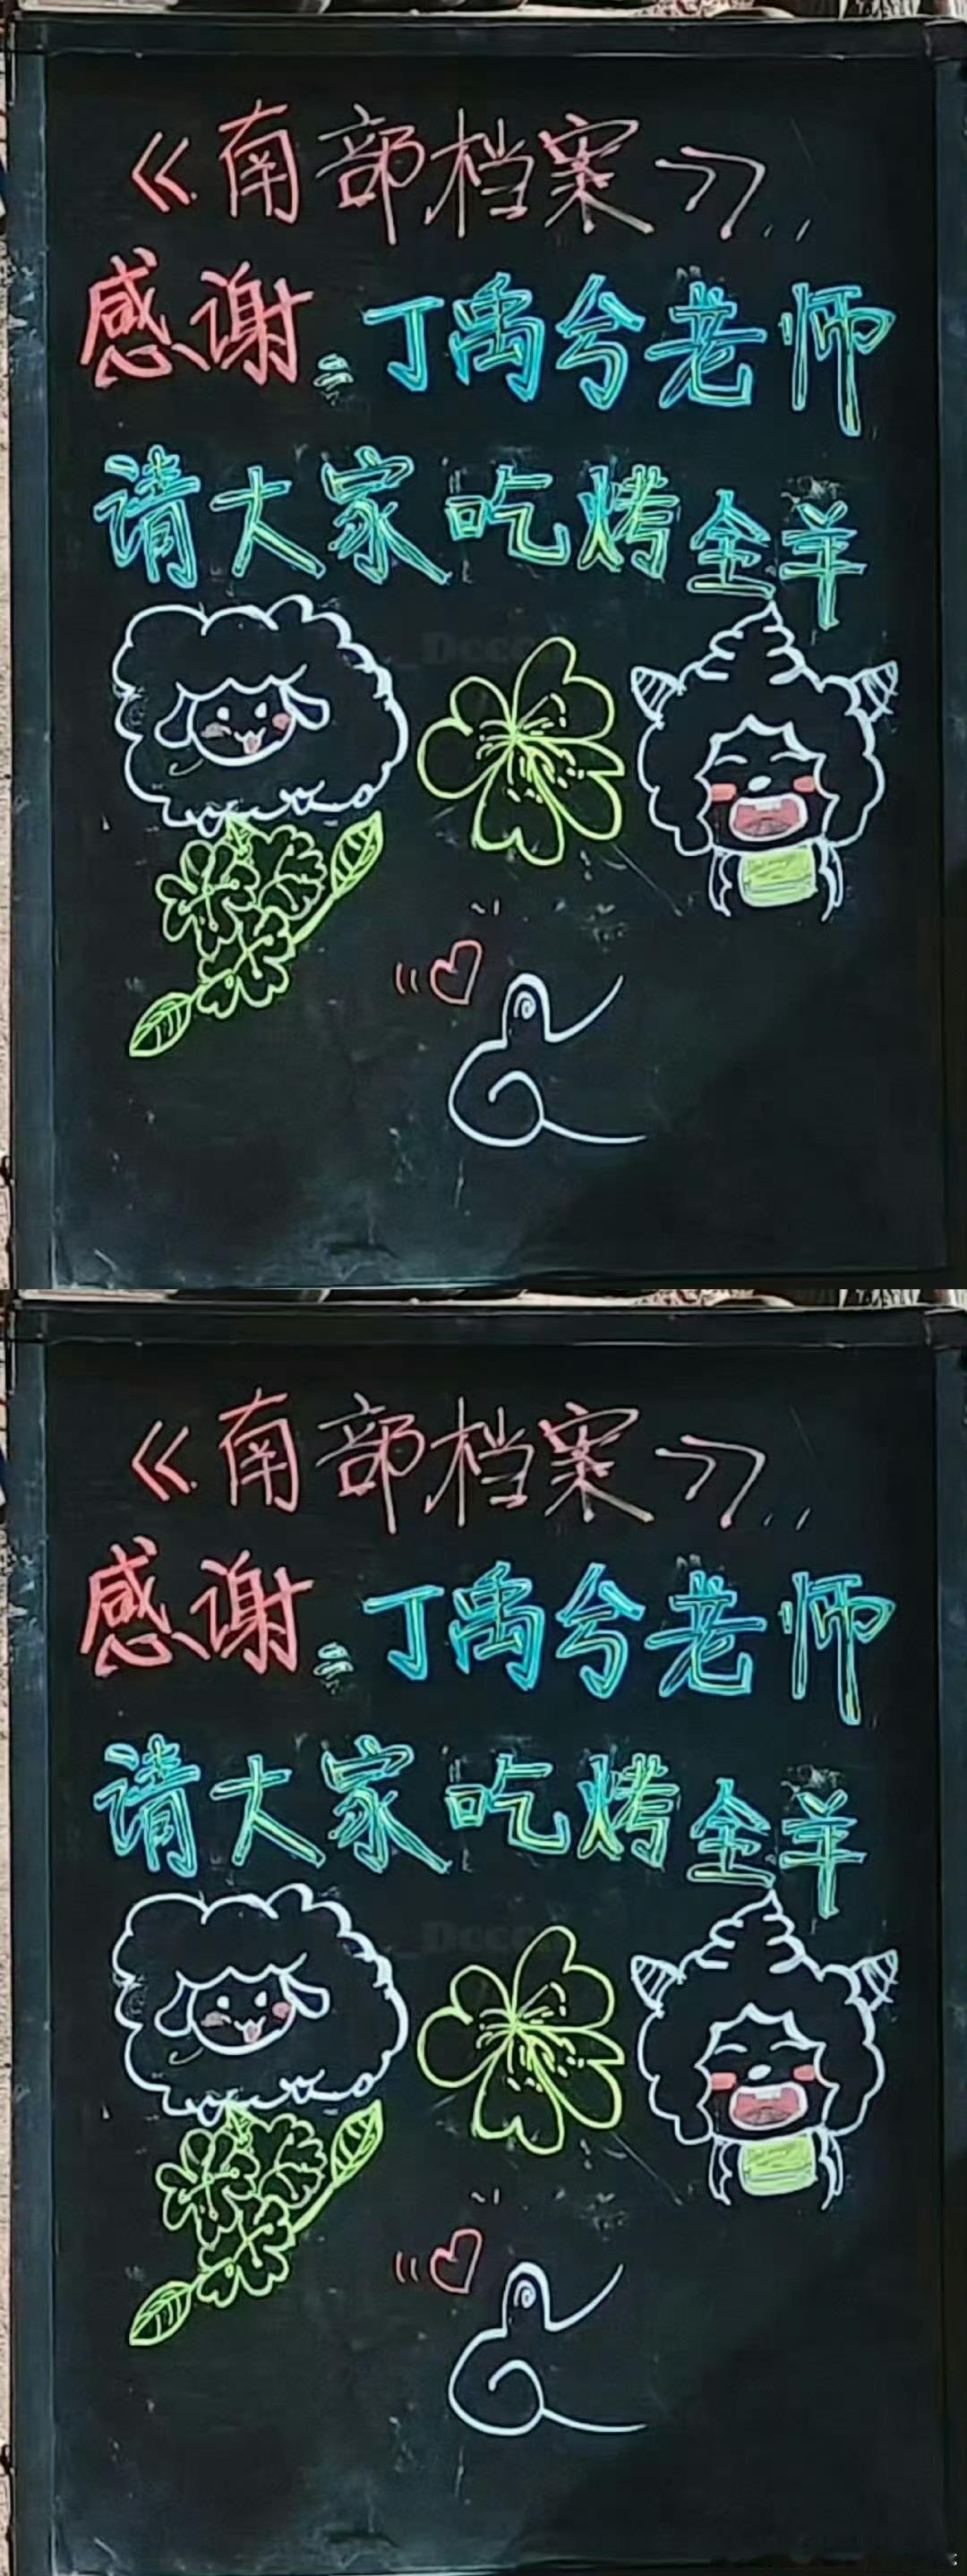 《南部档案》
感谢：丁禹兮老师
请大家吃烤全羊
《南部档案》
感谢：丁禹兮老师
请大家吃烤全羊